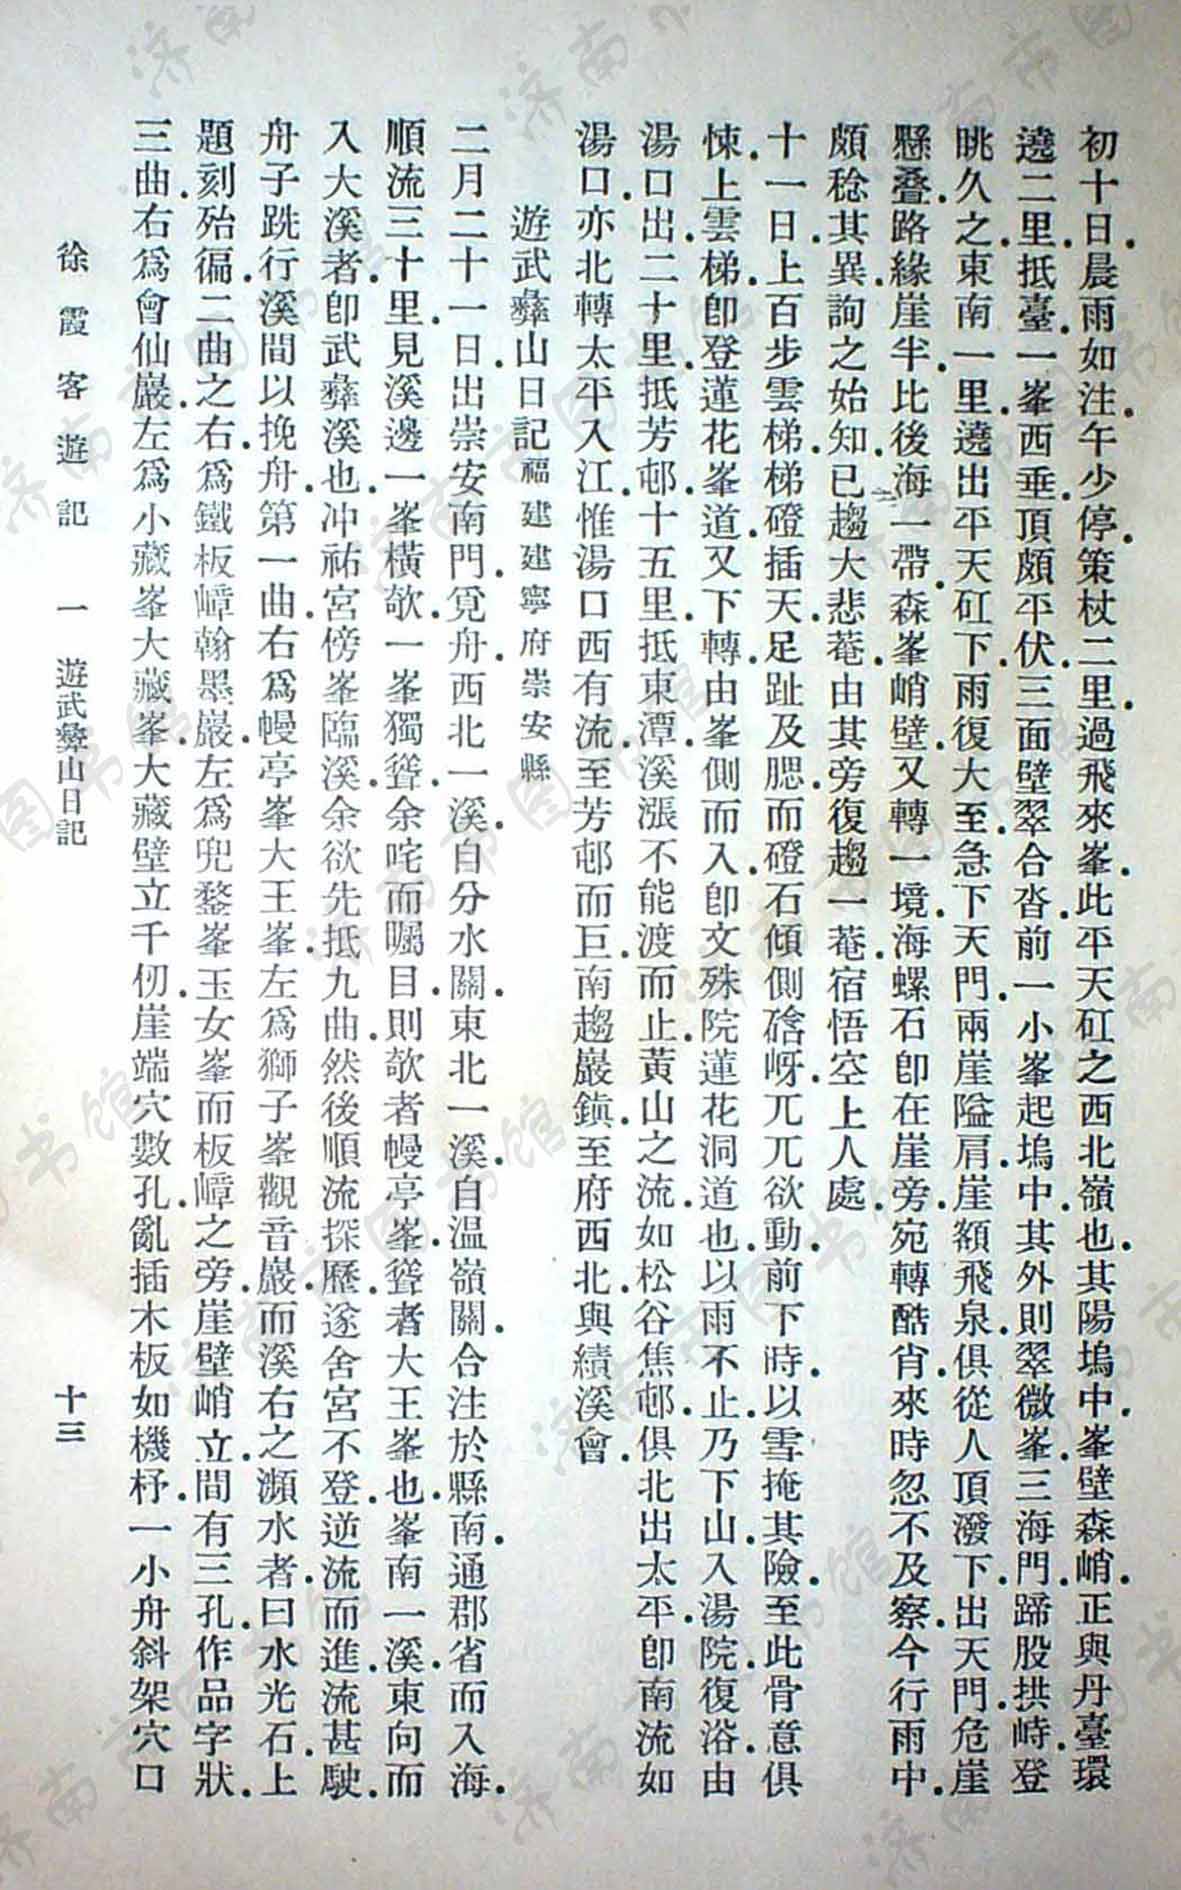 初十日晨雨如注午少停策杖二里過飛來峯此平天矼之西北嶺也其陽塢中峯壁森峭正與丹臺環
遶二里抵臺一峯西垂頂頗平伏三面壁翠合沓前一小峯起塢中其外則翠微峯三海門蹄股拱峙登
眺久之東南一里遶出平天矼下雨復大至急下天門兩崖隘肩崖額飛泉俱從人頂潑下出天門危崖
懸疊路緣崖半比後海一帶森峯峭壁又轉一境海螺石卽在崖旁宛轉酷肖來時忽不及察今行雨中
頗稔其異詢之始知已趨大悲菴由其旁復趨一菴宿悟空上人處
十一日上百步雲梯梯磴插天足趾及腮而磴石傾側硆岈兀兀欲動前下時以雪掩其險至此骨意俱
悚上雲梯卽登蓮花峯道又下轉由峯側而入卽文殊院蓮花洞道也以雨不止乃下山入湯院復浴由
湯口出二十里抵芳邨十五里抵東潭溪漲不能渡而止黃山之流如松谷焦邨俱北出太平卽南流如
湯口亦北轉太平入江惟湯口西有流至芳邨而巨南趨巖鎮至府西北與績溪會
遊武彝山日記福建建寧府崇安縣
二月二十一日出崇安南門覓舟西北一溪自分水關東北一溪自温嶺關合注於縣南通郡省而入海
順流三十里見溪邊一峯橫欹一峯獨聳余咤而矚目則欹者幔亭峯聳者大王峯也峯南一溪東向而
入大溪者卽武彝溪也冲祐宮傍峯臨溪余欲先抵九曲然後順流探歷遂舍宮不登逆流而進流甚駛
舟子跣行溪間以挽舟第一曲右爲幔亭峯大王峯左爲獅子峯觀音巖而溪右之瀕水者曰水光石上
題刻殆徧二曲之右爲鐵板嶂翰墨巖左爲兜鍪峯玉女峯而板嶂之旁崖壁峭立間有三孔作品字狀
三曲右爲會仙巖左爲小藏峯大藏峯大藏壁立千仞崖端穴數孔亂插木板如機杼一小舟斜架穴口
徐霞客遊記 一 遊武彝山日記 十三